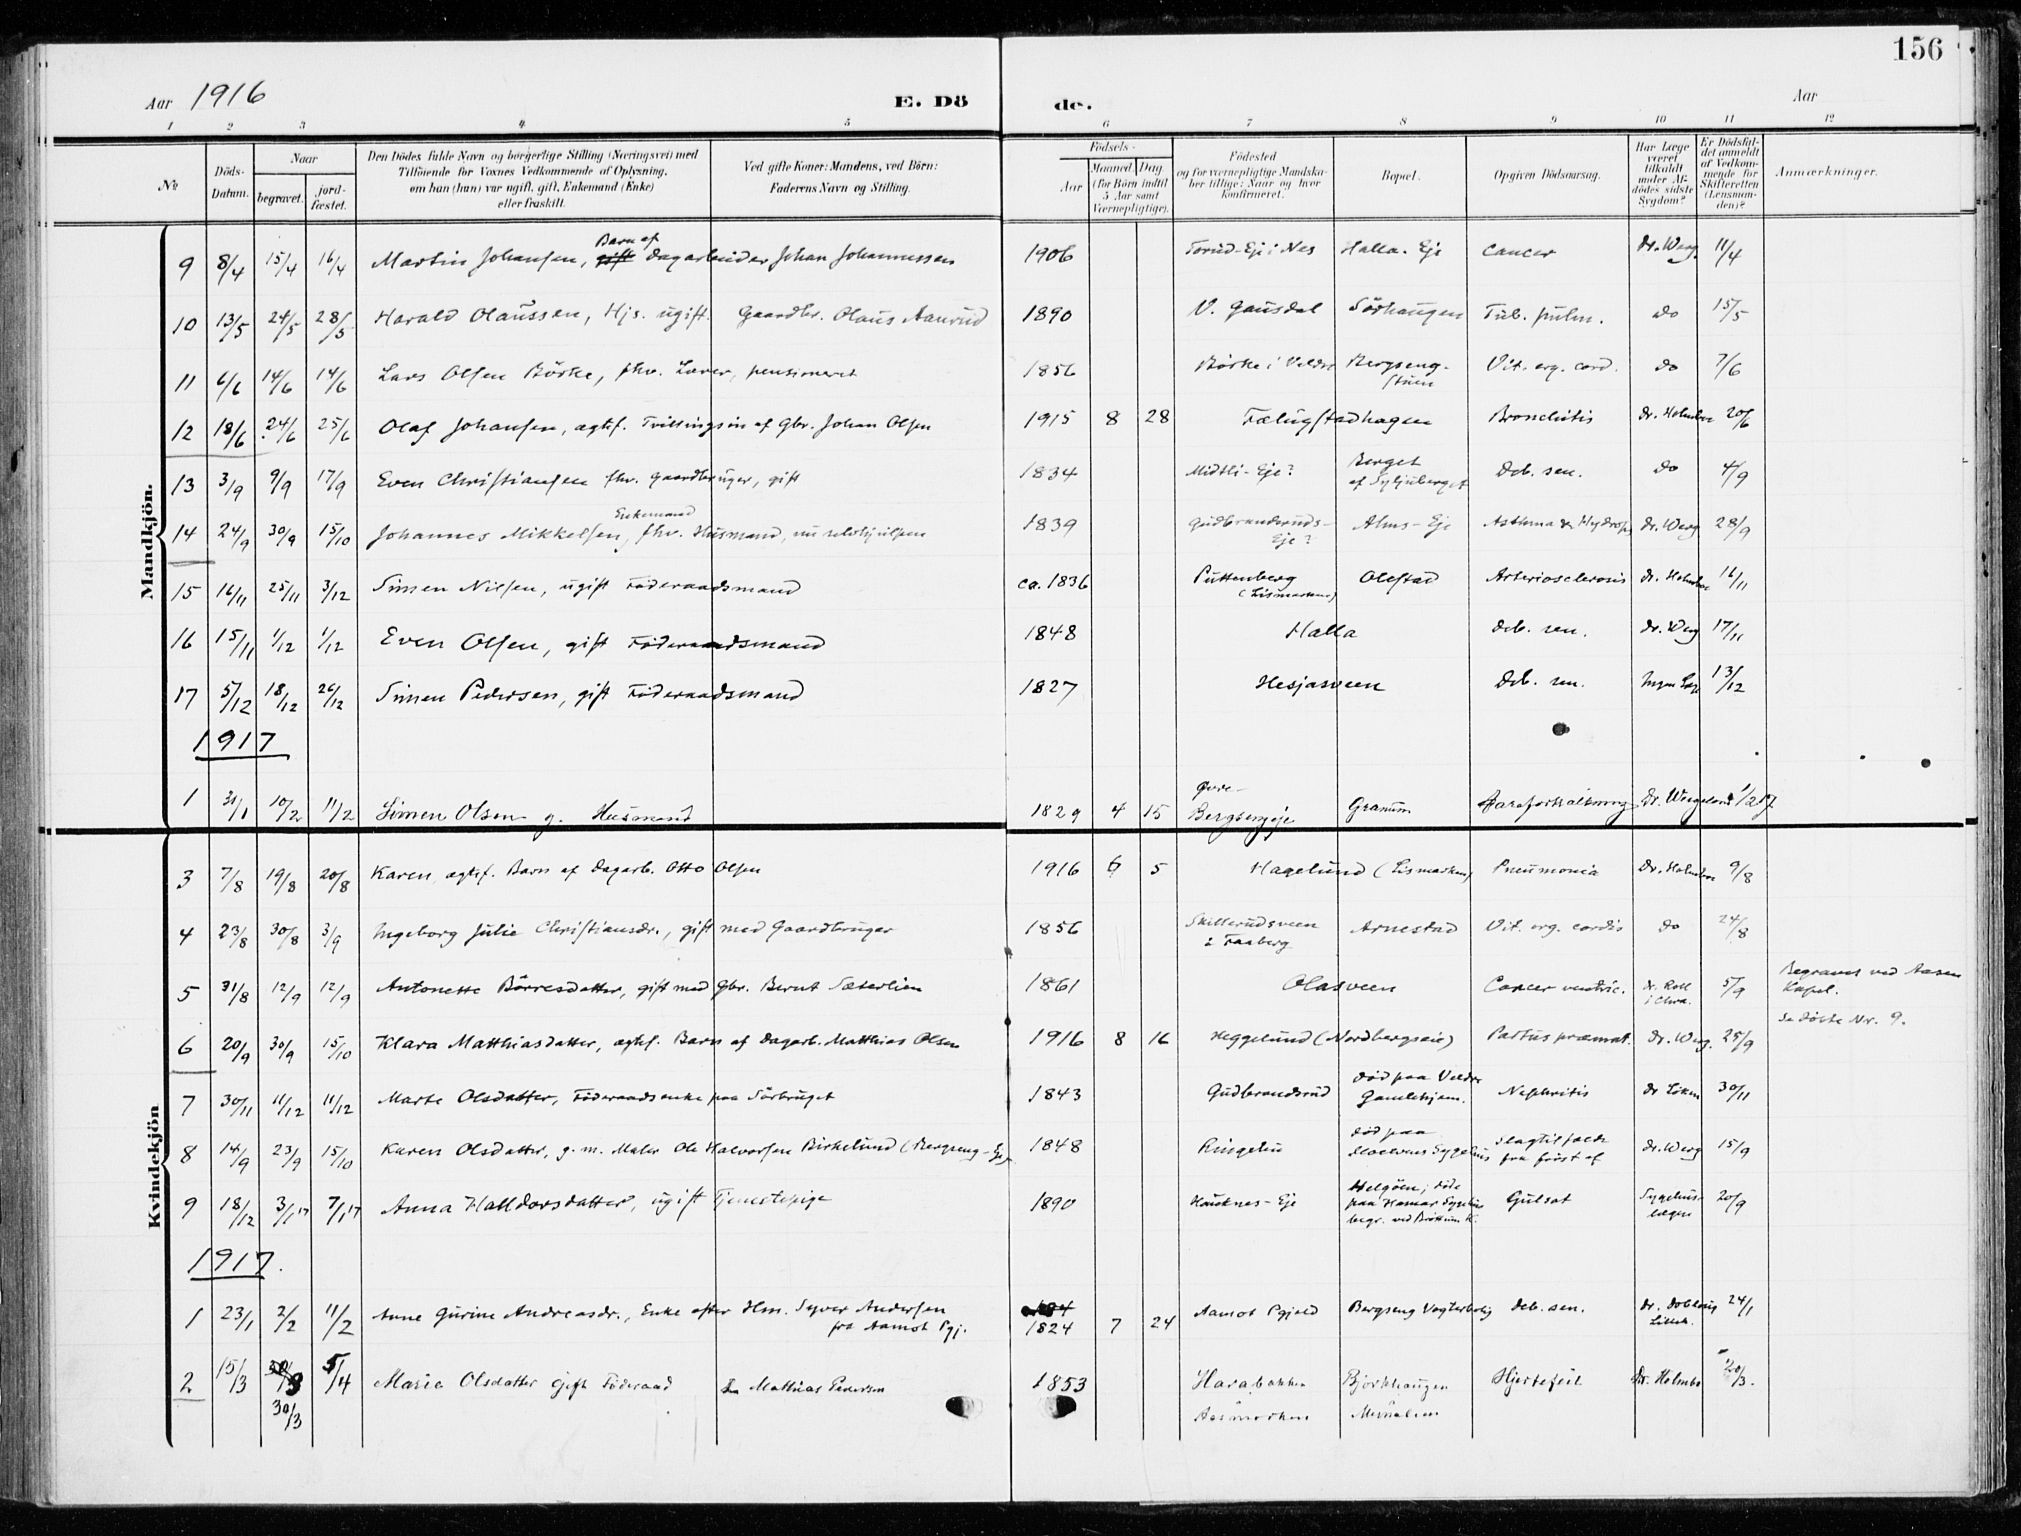 156
Aar 1916 E. Dö de. Aar
1 2 3 4 5 6 7 8 9 10 11 12
№
Döds-Datum.
Naar
begravet.
jord-fæstet.
Den Dödes fulde Navn og borgerlige Stilling (Næringsvei) med
Tilföiende for Voxnes Vedkommende af Oplysning,
om han (hun) var ugift, gift, Enkemand (Enke)
eller fraskilt.
Ved gifte Koner: Mandens, ved Börn:
Faderens Navn og Stilling.
Födsels-
Aar
Maaned. Dag.
(for Börn indtil
5 Aar samt
Værnepligtige).
Födested
og for værnepligtige Mandska-
ber tillige: Naar og hvor
konfirmeret.
Bopæl.
Opgiven Dödsaarsag.
Har Læge
været
tilkaldt
under Af-
dödes sidste
Sygdom?
Er Dödsfal-
det anmeldt
af Vedkom-
mende for
Skifteretten
(Lensman-
den)?
Anmærkninger.
Mandkjön.
Barn af
9 8/4 15/4 16/4 Martin Johansen, gift Dagarbeider Johan Johannessen 1906 Torud-Eje i Nes Halla-Eje Cancer Dr. Werg. 11/4
10 13/5 24/5 28/5 Harald Olaussen, Hjs. ugift. Gaardbr. Olaus Aanrud 1890 V. Gausdal Sörhaugen Tub. pulm. do 15/5
11 6/6 14/6 14/6 Lars Olsen Börke, fhv. Lærer, pensioneret 1856 Börke i Veldre Bergseng-stuen Vit. org. cord. do 7/6
12 18/6 24/6 25/6 Olaf Johansen, agtef. Tvillingsön af Gbr. Johan Olsen 1915 8 28 Fælugstadhagen Bronchitis dr. Holmboe 20/6
13 3/9 9/9 17/9 Even Christiansen fhv. gaardbruger, gift 1834 Midtli-Eje? Berget af Syljuberget Deb. sen. do 4/9
Enkemand
14 24/9 30/9 15/10 Johannes Mikkelsen, fhv. Husmand, nu selvhjulpen 1839 Gudbrandsruds-Eje? Alms-Eje Asthma & Hydrops dr. Werg 28/9
15 16/11 25/11 3/12 Simen Nilsen, ugift Föderaadsmand ca. 1836 Puttenberg (Lismarken) Olestad Arteriosclerosis dr. Holmboe 16/11
16 15/11 1/12 1/12 Even Olsen, gift Föderaadsmand 1848 Halla deb. sen. dr. Werg 17/11
17 5/12 18/12 26/12 Simen Pedersen, gift Föderaadsmand 1827 Hesjasveen Deb. sen. Ingen 13/12
1917
1 31/1 10/2 11/2 Simen Olsen g. Husmand 1829 4 15 Bergsengeje Granum Aareforkalkning Dr. Wergeland
Kvindekjön
3 7/8 19/8 20/8 Karen, agtef. Barn af Dagarb. Otto Olsen 1916 6 5 Hagelund (Lismarken) Pneumonia Dr. Holmboe 9/8
4 23/8 30/8 3/9 Ingeborg Julie Christiansdr., gift med Gaardbruger 1856 Skillerudsveen i Faaberg Arnestad Vit. org. cordis do 24/8
5 31/8 12/9 12/9 Antonette Börresdatter, gift med Gbr. Bernt Sæterlien 1861 Olasveen Cancer ventric. dr. Roll i Chra. 5/9 Begravet ved Aasen Kapel.
6 20/9 30/9 15/10 Klara Matthiasdatter, agtef. Barn af Dagarb. Matthias Olsen 1916 8 16 Heggelund (Nordbergseie) Partus præmat. Dr. Werg. 25/9 Se døbte Nr. 9.
7 30/11 11/12 11/12 Marte Olsdatter, Föderaadsenke paa Sörbruget 1843 Gudbrandsrud død paa Veldre Gamlehjem. Nephritis dr Löken 30/11
8 14/9 23/9 15/10 Karen Olsdatter, g. m. Maler Ole Halvorsen Birkelund (Bergseng-Eje) 1848 Ringelien død paa Moelvens Sygehus slagtilfælde dr. Werg 15/9
9 18/12 3/1 17 7/1 17 Anna Halldorsdatter, ugift Tjenestepige 1890 Hauknes-Eje Helgöen; døde paa Hamar Sygehus begr. ved Bröttum K. Gulsot Sygehus-lægen 20/9
1917.
1 23/1 2/2 11/2 Anne Gurine Andreasdr., Enke efter Hm. Syver Andersen fra Aamot Pgj. 184 1824 7 24 Aamot Pgjeld Bergseng Vogterbolig deb. sen. dr. Dobloug Lilleh. 24/1
2 15/3 30/3 30/3 5/4 Marie Olsdatter Gjift Föderaad Mathias Pedersen 1853 Harabakken Aasmarken Bjørkhaugen Mesnalien Hjertefeil Dr. Holmbo 20/3.